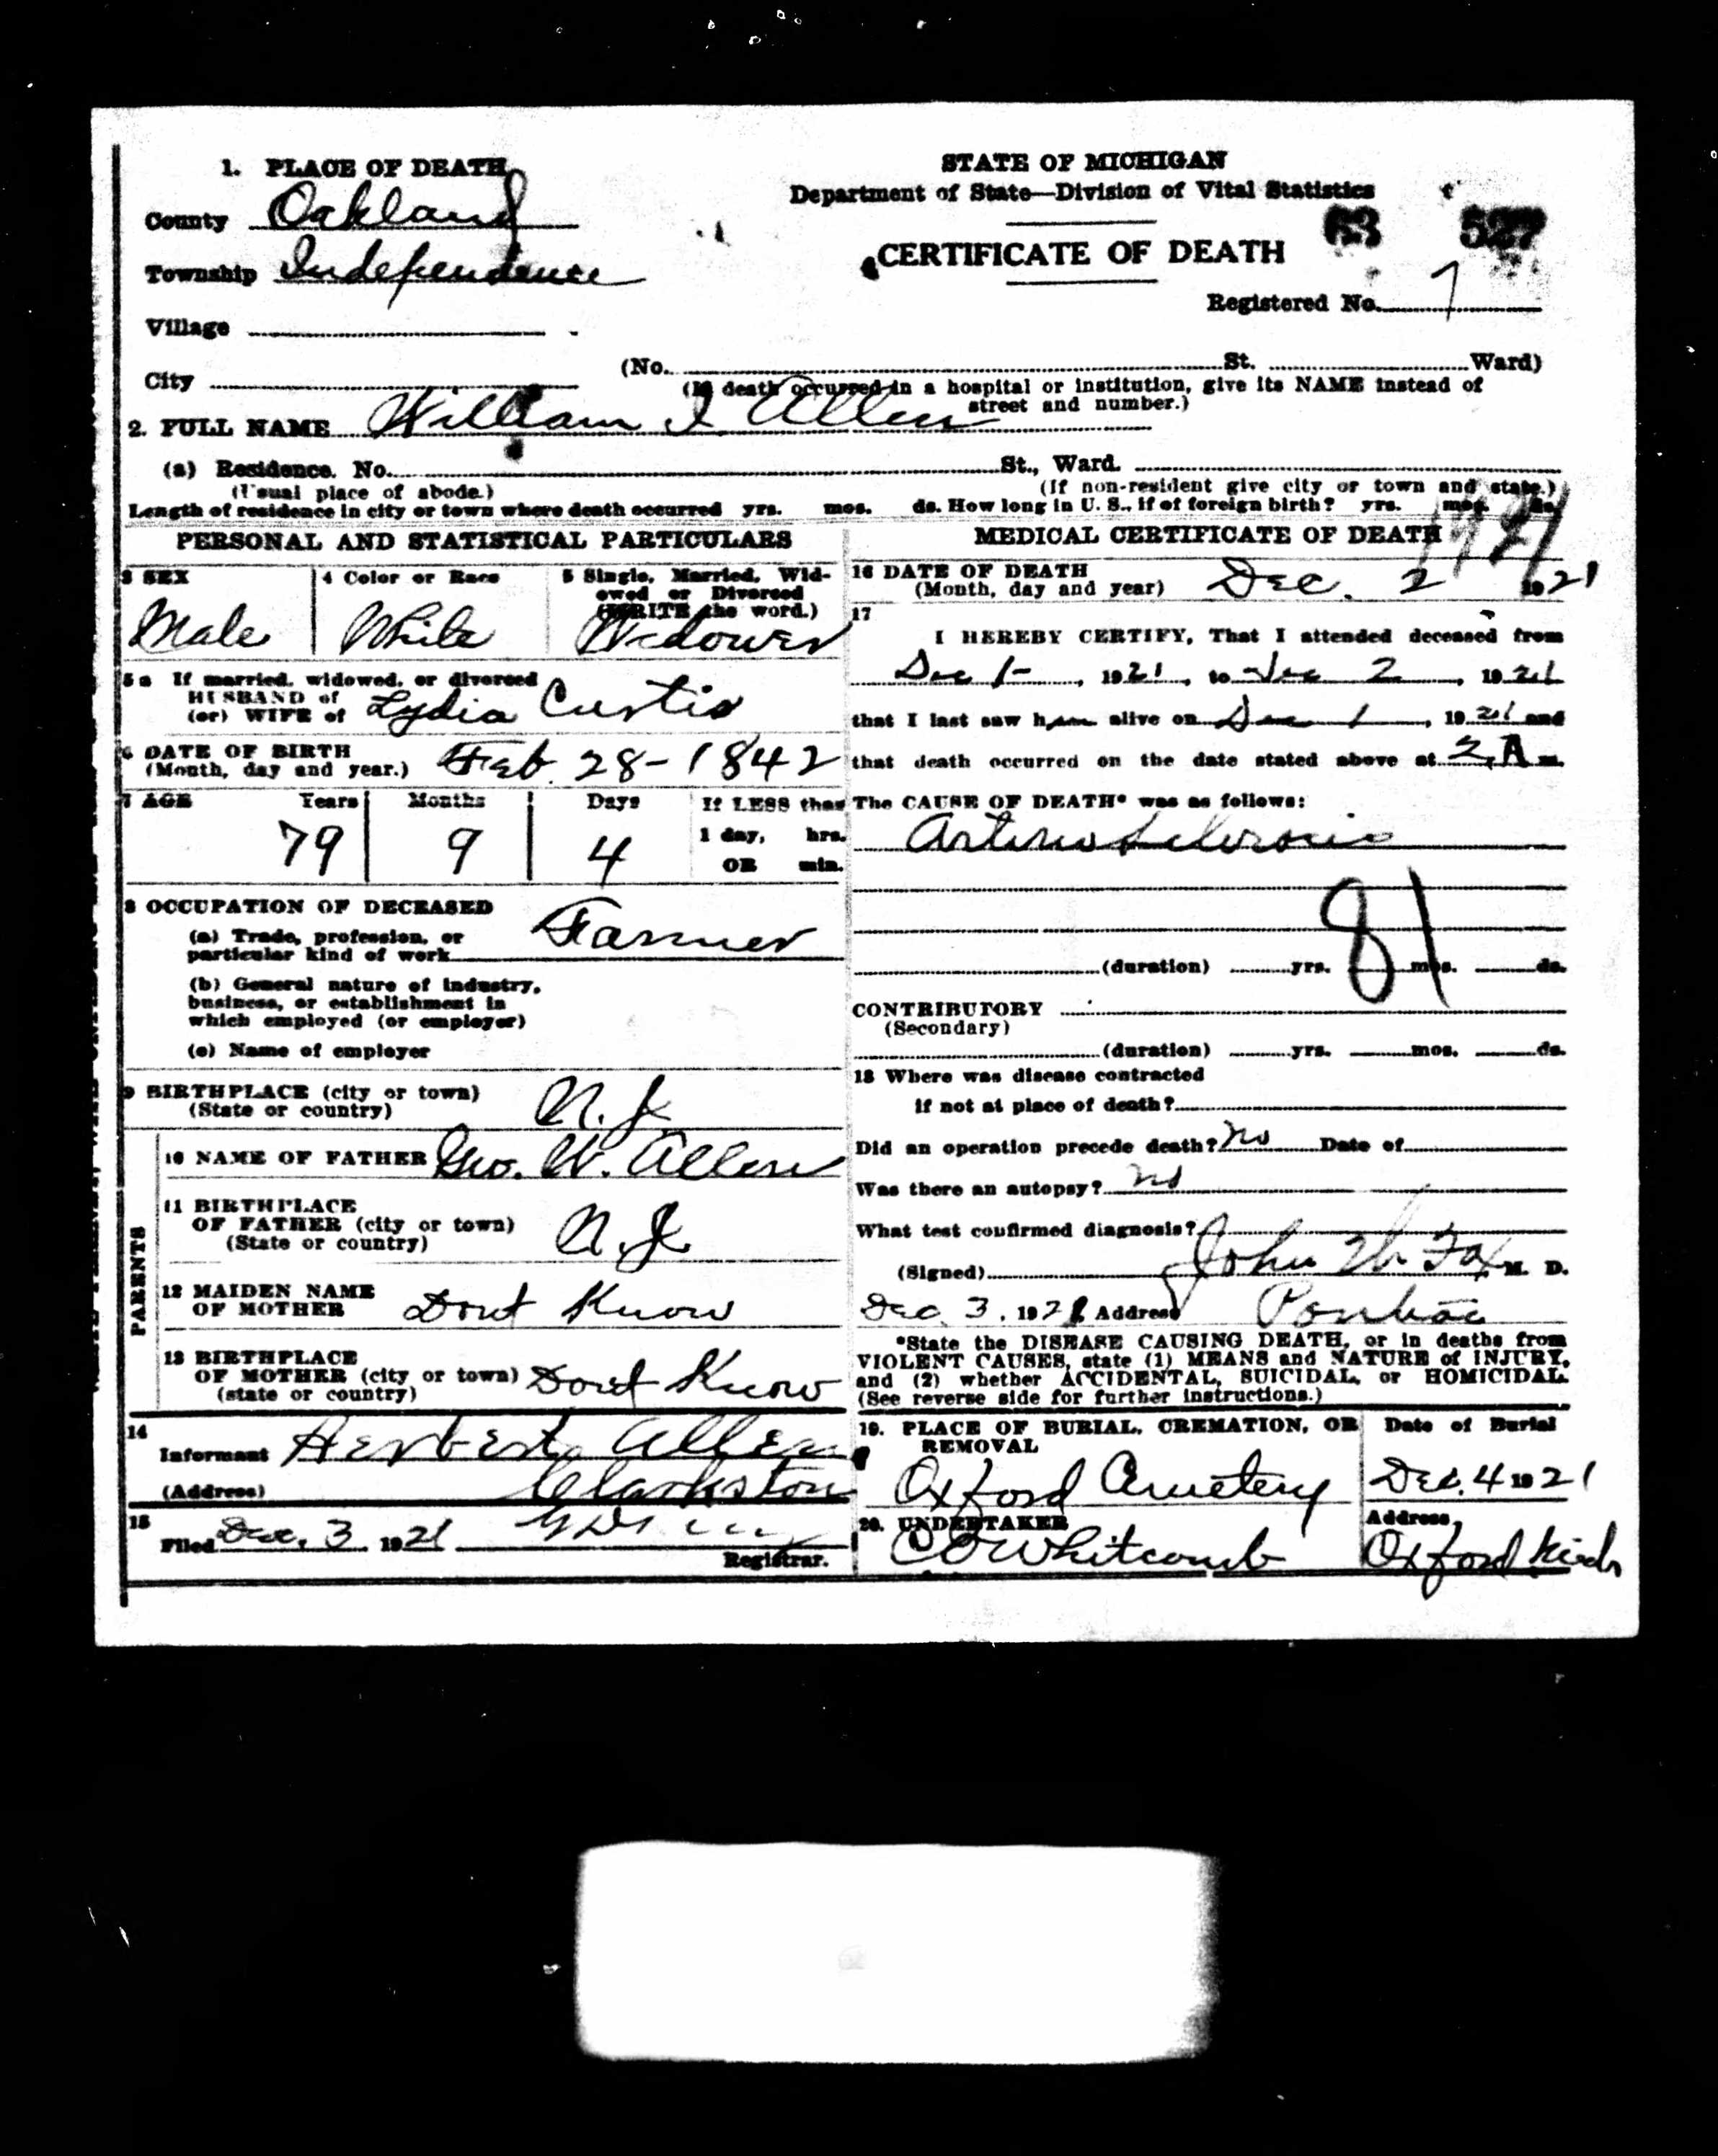 1. PLACE OF DEATH
County Oakland
Township Independence
Village
City
STATE OF MICHIGAN
Department of State—Division of Vital Statistics
63 527
CERTIFICATE OF DEATH
Registered No. 7
(No. St. Ward)
(If death occurred in a hospital or institution, give its NAME instead of
street and number.)
2. FULL NAME William I Allen
(a) Residence. No. St., Ward.
(Usual place of abode.) (If non-resident give city or town and state.)
Length of residence in city or town where death occurred yrs. mos. ds. How long in U. S., if of foreign birth? yrs. mos. ds.
PERSONAL AND STATISTICAL PARTICULARS
3 SEX
Male
4 Color or Race
White
5 Single, Married, Wid-
owed or Divorced
(WRITE the word.)
Widower
5 a If married, widowed, or divorced
HUSBAND of
(or) WIFE of Lydia Curtis
6 DATE OF BIRTH
(Month, day and year.) Feb 28-1842
7 AGE Years Months Days If LESS than
1 day, hrs.
OR min.
79 9 4
8 OCCUPATION OF DECEASED
(a) Trade, profession, or
particular kind of work Farmer
(b) General nature of industry,
business, or establishment in
which employed (or employer)
(c) Name of employer
9 BIRTHPLACE (city or town)
(State or country) N.J.
PARENTS
10 NAME OF FATHER Geo. W. Allen
11 BIRTHPLACE
OF FATHER (city or town)
(State or country) N.J.
12 MAIDEN NAME
OF MOTHER Dont Know
13 BIRTHPLACE
OF MOTHER (city or town) Dont Know
(state or country)
14
Informant Herbert Allen
(Address) Clarkston
15
Filed Dec. 3 1921
Registrar.
MEDICAL CERTIFICATE OF DEATH
1921
16 DATE OF DEATH
(Month, day and year) Dec. 2 1921
17
I HEREBY CERTIFY, That I attended deceased from
Dec 1- , 1921, to Dec 2 , 1921
that I last saw him alive on Dec 1 , 1921 and
that death occurred on the date stated above at 2 A m.
The CAUSE OF DEATH* was as follows:
Arterio Sclerosis
81
(duration) yrs. mos. ds.
CONTRIBUTORY
(Secondary)
(duration) yrs. mos. ds.
18 Where was disease contracted
if not at place of death?
Did an operation precede death? no Date of
Was there an autopsy? no
What test confirmed diagnosis?
(Signed) John W. Fox M. D.
Dec. 3, 1921 Address Pontiac
*State the DISEASE CAUSING DEATH, or in deaths from
VIOLENT CAUSES, state (1) MEANS and NATURE of INJURY,
and (2) whether ACCIDENTAL, SUICIDAL, or HOMICIDAL.
(See reverse side for further instructions.)
19. PLACE OF BURIAL, CREMATION, OR
REMOVAL
Oxford Cemetery
Date of Burial
Dec. 4 1921
20. UNDERTAKER
C O Whitcomb
Address
Oxford Mich